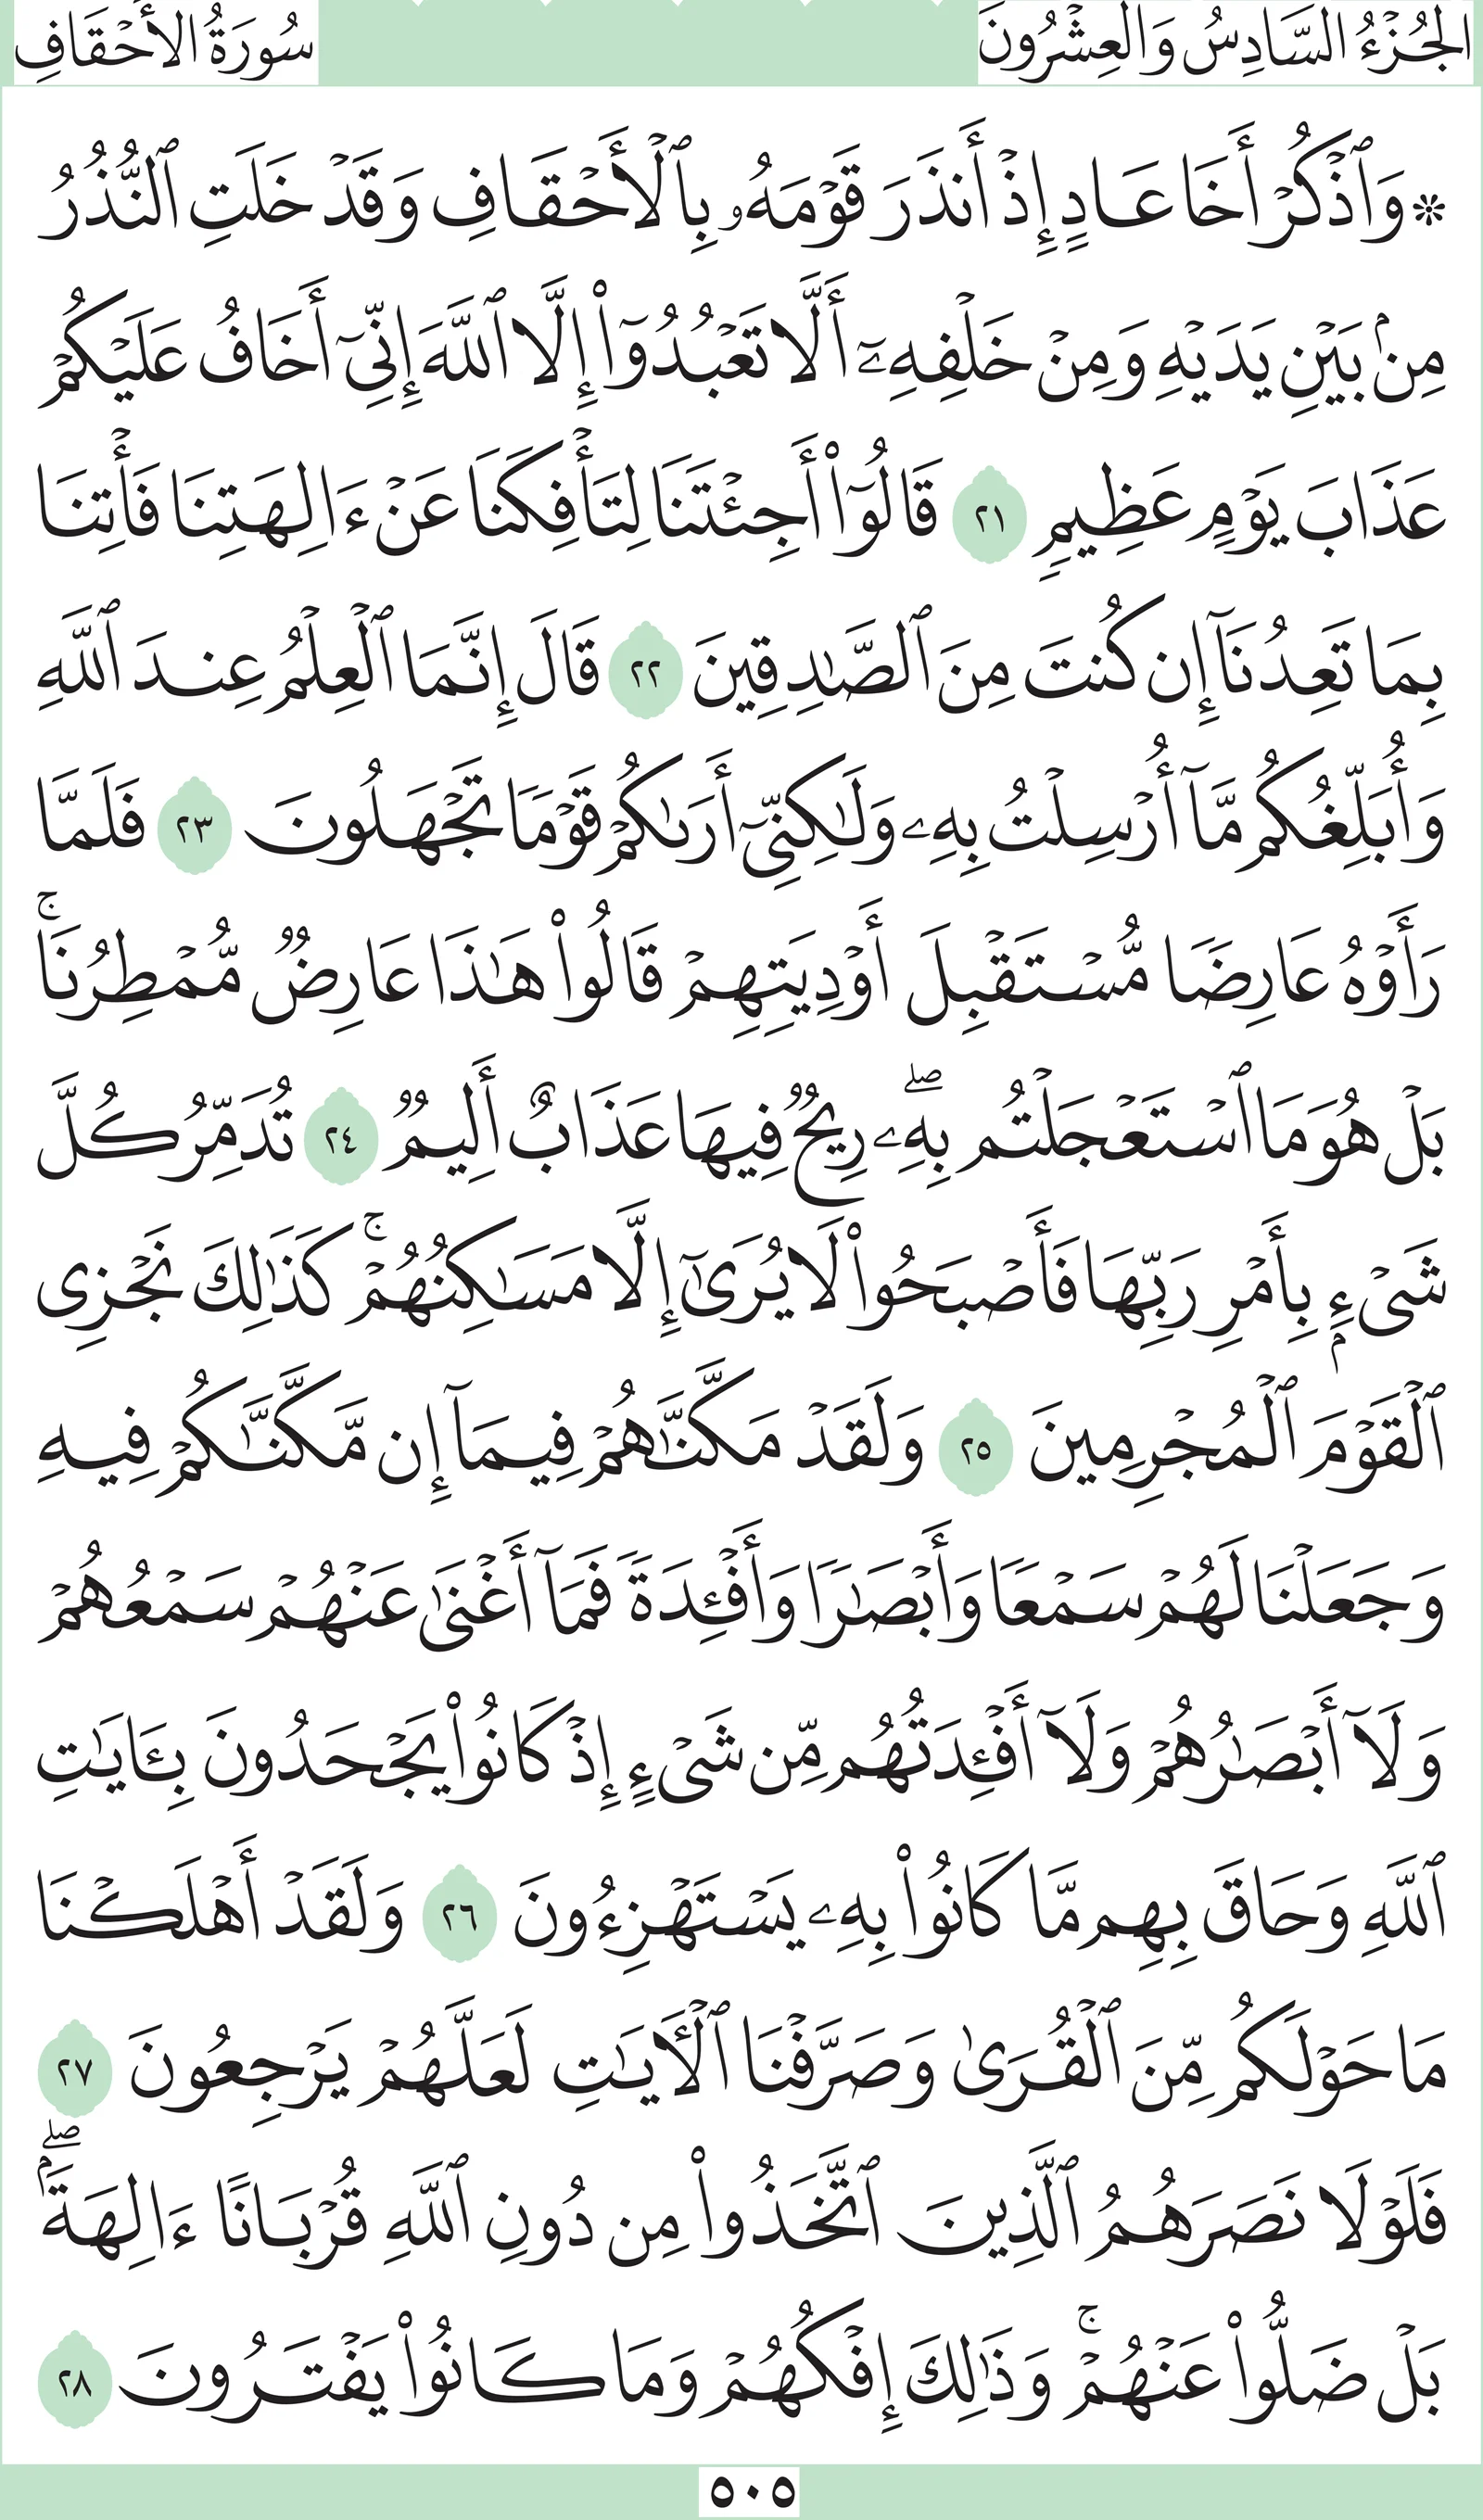 الجُزْءُ السَّادِسُ وَالعِشْرُونَ
سُورَةُ الأَحْقَافِ
۞ وَٱذْكُرْ أَخَا عَادٍ إِذْ أَنذَرَ قَوْمَهُۥ بِٱلْأَحْقَافِ وَقَدْ خَلَتِ ٱلنُّذُرُ
مِنۢ بَيْنِ يَدَيْهِ وَمِنْ خَلْفِهِۦٓ أَلَّا تَعْبُدُوٓاْ إِلَّا ٱللَّهَ إِنِّىٓ أَخَافُ عَلَيْكُمْ
عَذَابَ يَوْمٍ عَظِيمٍ ٢١ قَالُوٓاْ أَجِئْتَنَا لِتَأْفِكَنَا عَنْ ءَالِهَتِنَا فَأْتِنَا
بِمَا تَعِدُنَآ إِن كُنتَ مِنَ ٱلصَّٰدِقِينَ ٢٢ قَالَ إِنَّمَا ٱلْعِلْمُ عِندَ ٱللَّهِ
وَأُبَلِّغُكُم مَّآ أُرْسِلْتُ بِهِۦ وَلَٰكِنِّىٓ أَرَىٰكُمْ قَوْمًا تَجْهَلُونَ ٢٣ فَلَمَّا
رَأَوْهُ عَارِضًا مُّسْتَقْبِلَ أَوْدِيَتِهِمْ قَالُواْ هَٰذَا عَارِضٌ مُّمْطِرُنَاۚ
بَلْ هُوَ مَا ٱسْتَعْجَلْتُم بِهِۦۖ رِيحٌ فِيهَا عَذَابٌ أَلِيمٌ ٢٤ تُدَمِّرُ كُلَّ
شَىْءٍۭ بِأَمْرِ رَبِّهَا فَأَصْبَحُواْ لَا يُرَىٰٓ إِلَّا مَسَٰكِنُهُمْۚ كَذَٰلِكَ نَجْزِى
ٱلْقَوْمَ ٱلْمُجْرِمِينَ ٢٥ وَلَقَدْ مَكَّنَّٰهُمْ فِيمَآ إِن مَّكَّنَّٰكُمْ فِيهِ
وَجَعَلْنَا لَهُمْ سَمْعًا وَأَبْصَٰرًا وَأَفْـِٔدَةً فَمَآ أَغْنَىٰ عَنْهُمْ سَمْعُهُمْ
وَلَآ أَبْصَٰرُهُمْ وَلَآ أَفْـِٔدَتُهُم مِّن شَىْءٍ إِذْ كَانُواْ يَجْحَدُونَ بِـَٔايَٰتِ
ٱللَّهِ وَحَاقَ بِهِم مَّا كَانُواْ بِهِۦ يَسْتَهْزِءُونَ ٢٦ وَلَقَدْ أَهْلَكْنَا
مَا حَوْلَكُم مِّنَ ٱلْقُرَىٰ وَصَرَّفْنَا ٱلْأٓيَٰتِ لَعَلَّهُمْ يَرْجِعُونَ ٢٧
فَلَوْلَا نَصَرَهُمُ ٱلَّذِينَ ٱتَّخَذُواْ مِن دُونِ ٱللَّهِ قُرْبَانًا ءَالِهَةَۢۖ
بَلْ ضَلُّواْ عَنْهُمْۚ وَذَٰلِكَ إِفْكُهُمْ وَمَا كَانُواْ يَفْتَرُونَ ٢٨
٥٠٥